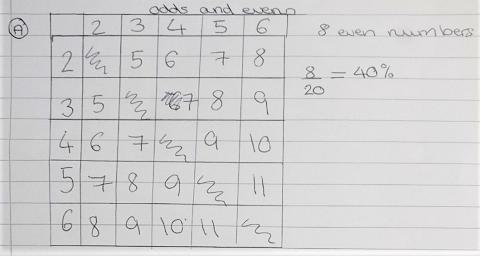 odds and evens
A 2 3 4 5 6 8 even numbers
2 5 6 7 8 8/20 = 40%
3 5 7 8 9
4 6 7 9 10
5 7 8 9 11
6 8 9 10 11